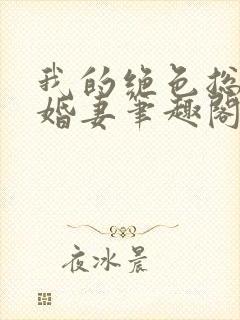 我的绝色总
婚妻笔趣阁
夜冰晨